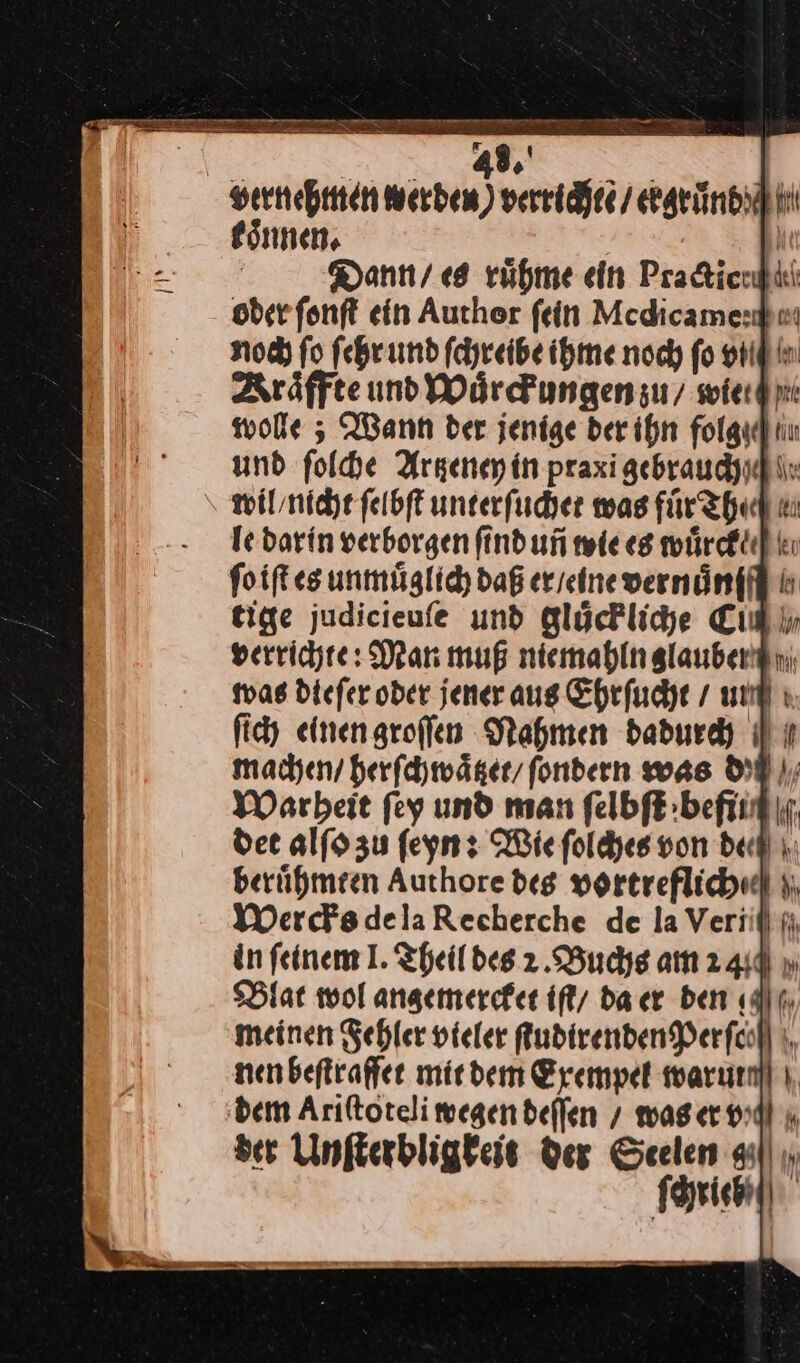 48.
vernehmen werden) verrichte / ergründ
können.
Dann / es rühme ein Practic
oder ſonſt ein Author ſein Medicame
noch ſo ſehr und ſchreibe ihme noch ſo vi
Kräffte und Würckungen zu / wie
wolle ; Wann der jenige der ihn folg
und ſolche Artzeney in praxi gebrauch
wil / nicht ſelbſt unterſuchet was für The
le darin verborgen ſind uñ wie es würck
ſo iſt es unmüglich daß er / eine vernünf
tige judicieuſe und glückliche Cu
verrichte : Man muß niemahln glauben
was dieſer oder jener aus Ehrſucht / um
ſich einen groſſen Nahmen dadurch
machen / herſchwätzet / ſondern was d
Warheit ſey und man ſelbſt befin
det alſo zu ſeyn : Wie ſolches von de
berühmten Authore des vortreflich
Wercks de la Recherche de la Veri
in ſeinem I. Theil des 2. Buchs am 24
Blat wol angemercket iſt / da er den
meinen Fehler vieler ſtudirenden Perſo
nen beſtraffet mit dem Exempel warum
dem Ariſtoteli wegen deſſen / was er v
der Unſterbligkeit der Seelen g
ſchrieb